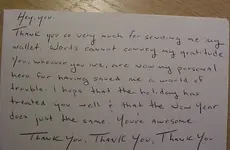 Hey, you.
Thank you so very much for sending me my
wallet. Words cannot convey my gratitude
You, wherever you are, are now my personal
hero for having saved me a world of
trouble. I hope that the holiday has
treated you well & that the New Year
does just the same. You're awesome.
Thank You, Thank You, Thank You